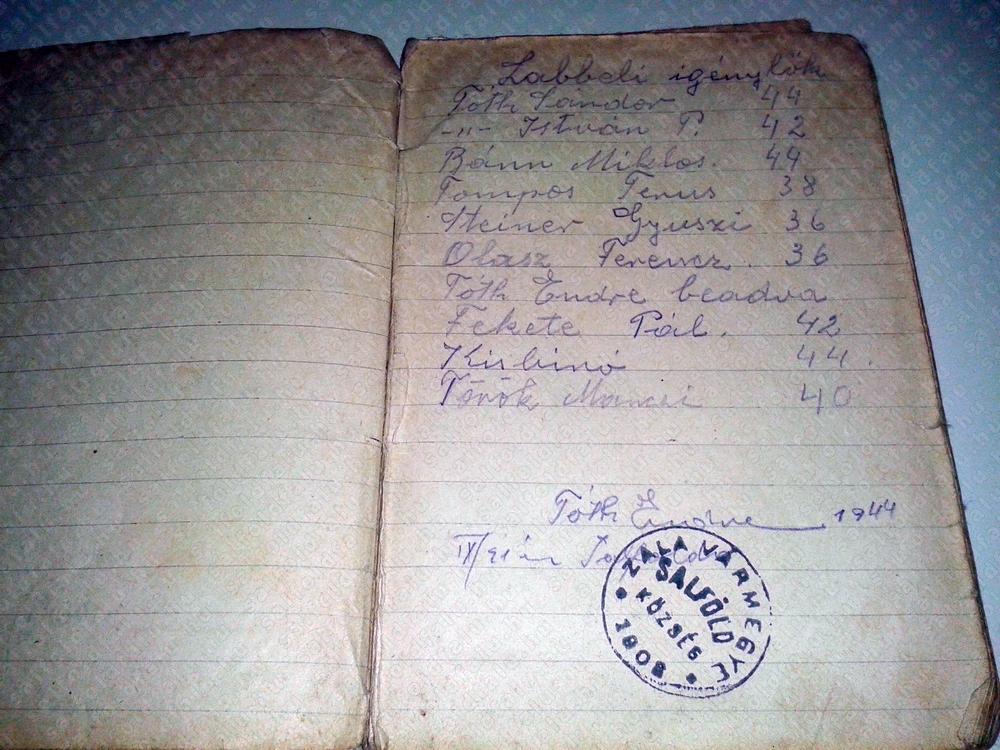 Labbeli igénylők
Tóth Sándor 44
-"- István P. 42
Bánn Miklos. 44
Tompos Terus 38
Steiner Gyuszi 36
Olasz Ferencz. 36
Tóth Endre beadva
Fekete Pál. 42
Kisbinó 44.
Török Manci 40
Tóth Endre 1944
ZALA VÁRMEGYE
SALFÖLD
KÖZSÉG
1908